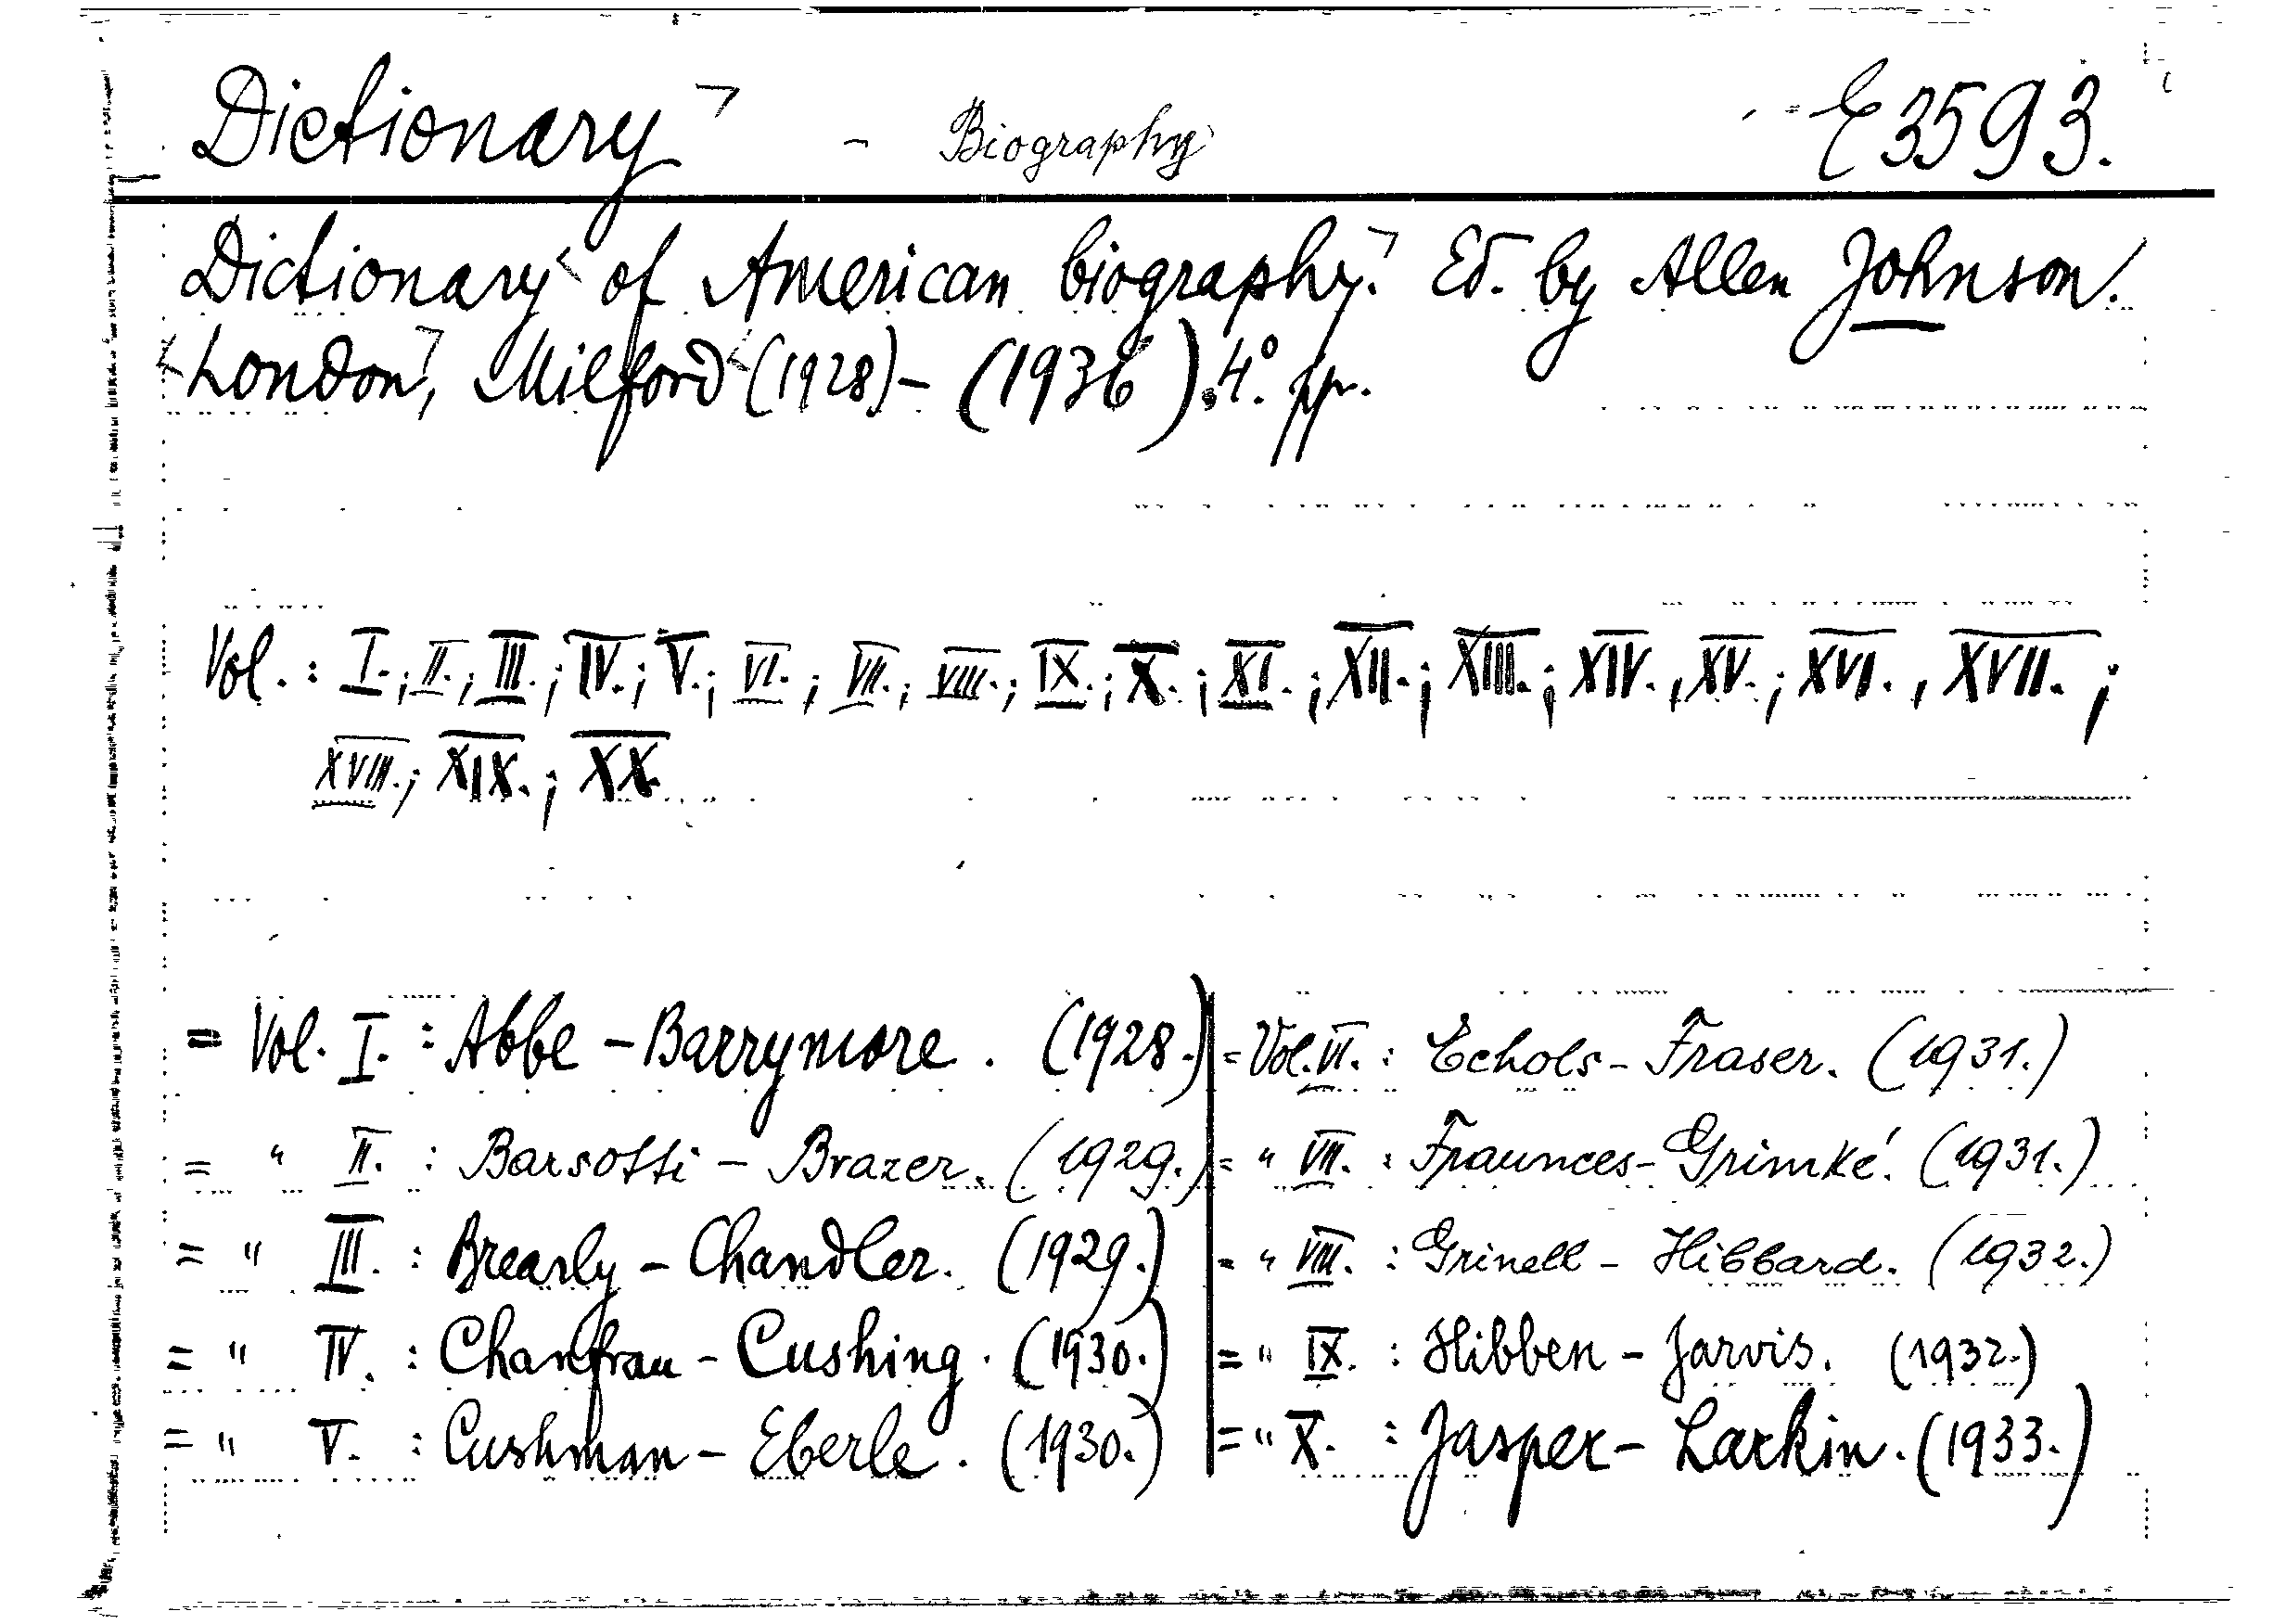 Dictionary - Biography E 3593.
Dictionary of American biography. Ed. by Allen Johnson.
London, Milford (1928)-(1936). 4°. pp.
Vol. : I.; II.; III.; IV.; V.; VI.; VII.; VIII.; IX.; X.; XI.; XII.; XIII.; XIV., XV.; XVI., XVII.;
XVIII.; XIX.; XX.
= Vol. I. : Abbe - Barrymore. (1928.)
= " II. : Barsotti - Brazer. (1929.)
= " III. : Brearly - Chandler. (1929.)
= " IV. : Chanfrau - Cushing. (1930.)
= " V. : Cushman - Eberle. (1930.)
= Vol. VI. : Echols - Fraser. (1931.)
= " VII. : Fraunces - Grimké. (1931.)
= " VIII. : Grinell - Hibbard. (1932.)
= " IX. : Hibben - Jarvis. (1932.)
= " X. : Jasper - Larkin. (1933.)